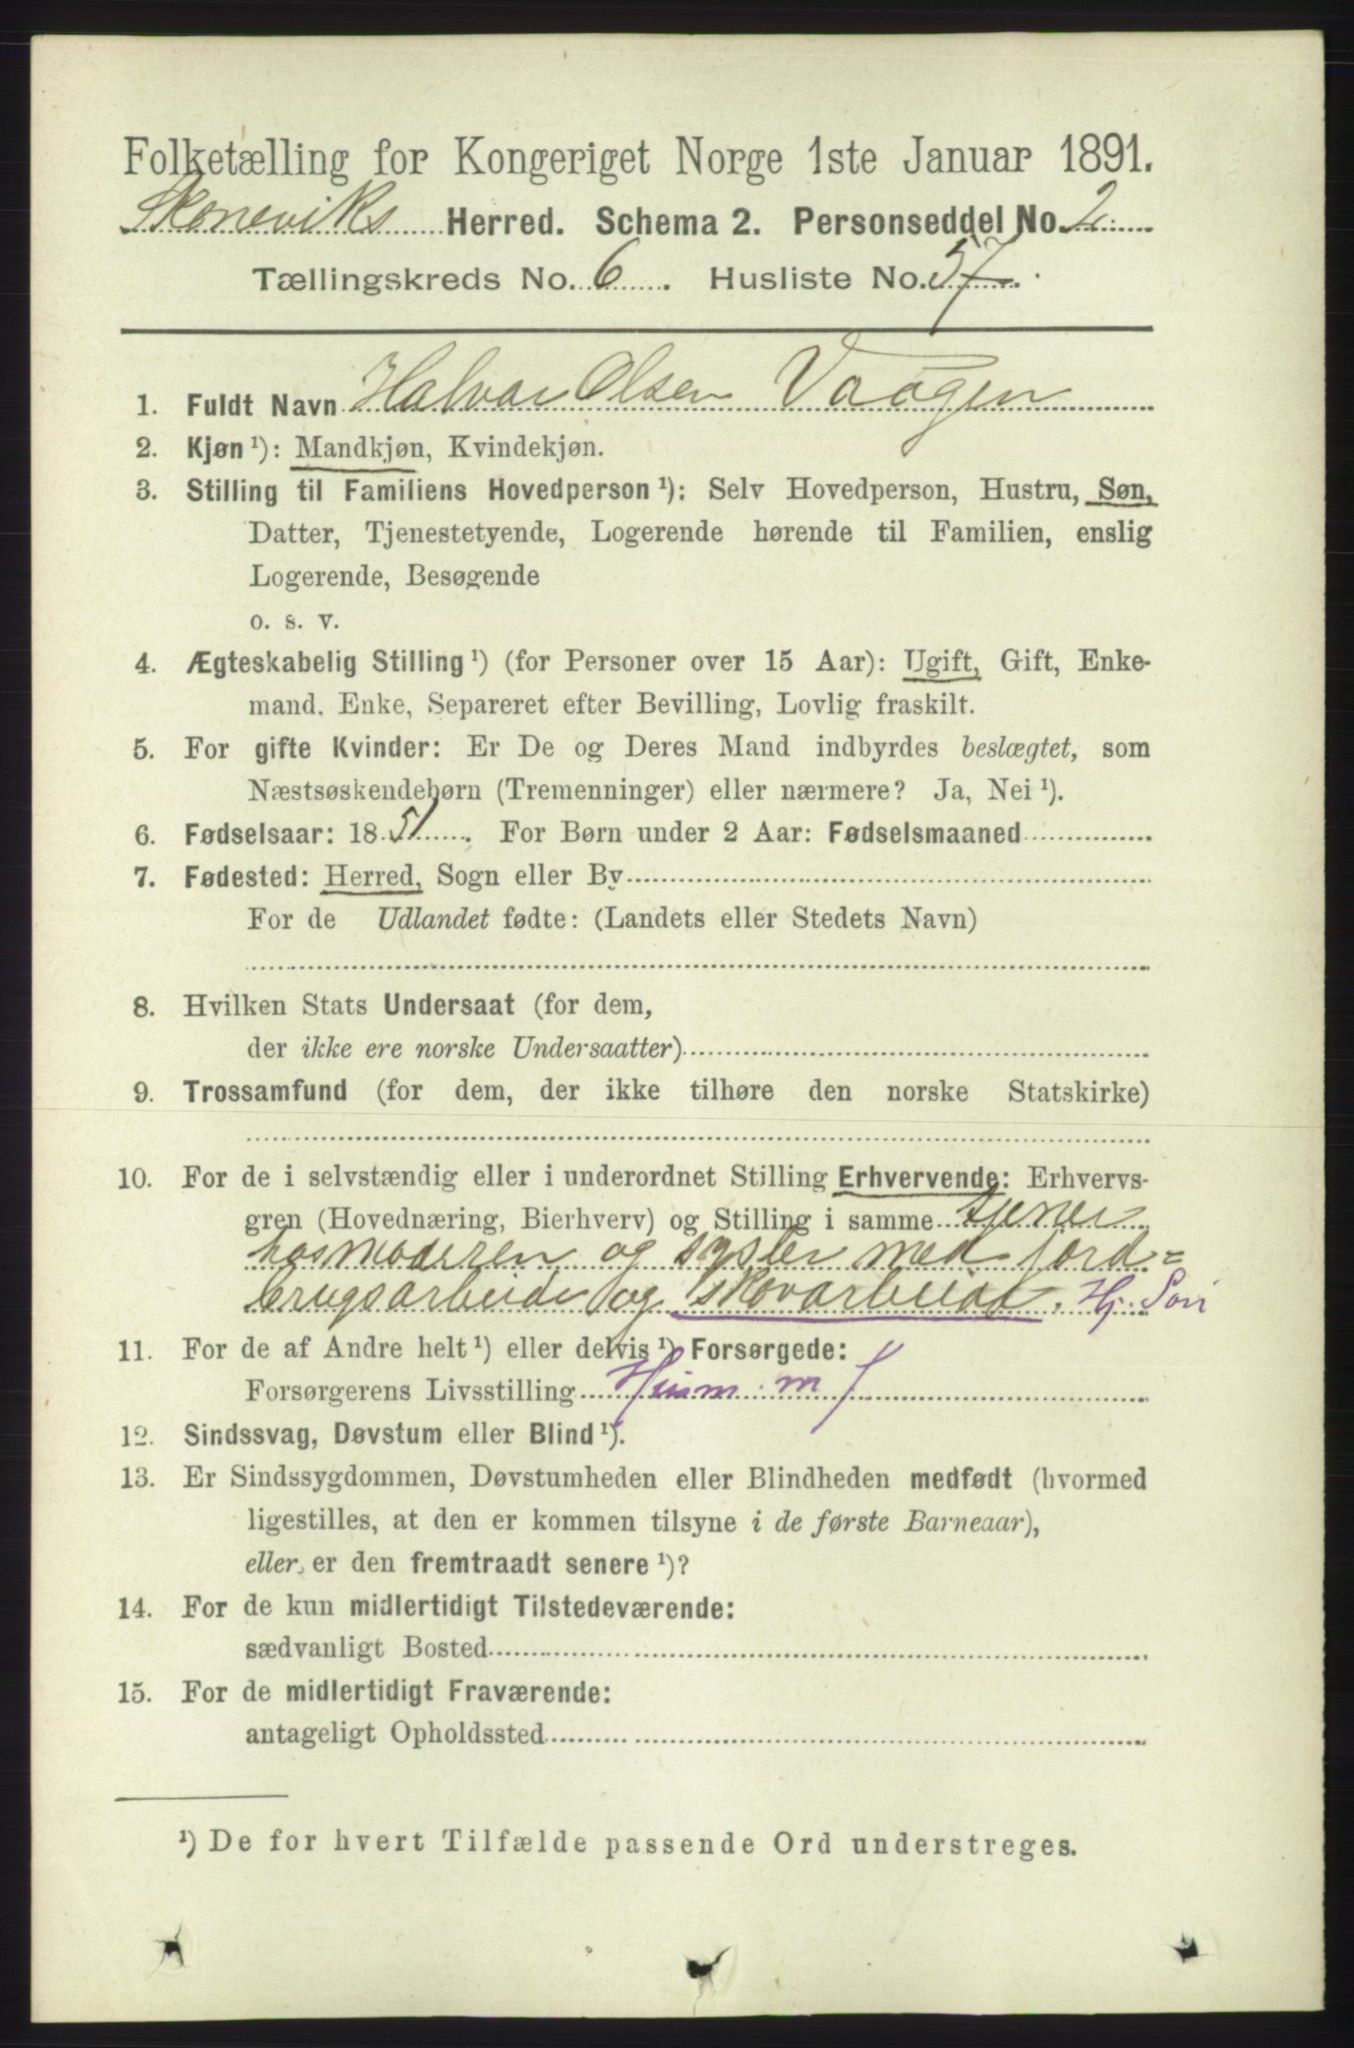 Folketælling for Kongeriget Norge 1ste Januar 1891.
Skoneviks Herred. Schema 2. Personseddel No. 2
Tællingskreds No. 6. Husliste No. 57.
1. Fuldt Navn Halvar Olsen Vaagen
2. Kjøn ¹): Mandkjøn, Kvindekjøn.
3. Stilling til Familiens Hovedperson ¹): Selv Hovedperson, Hustru, Søn,
Datter, Tjenestetyende, Logerende hørende til Familien, enslig
Logerende, Besøgende
o. s. v.
4. Ægteskabelig Stilling ¹) (for Personer over 15 Aar): Ugift, Gift, Enke-
mand, Enke, Separeret efter Bevilling, Lovlig fraskilt.
5. For gifte Kvinder: Er De og Deres Mand indbyrdes beslægtet, som
Næstsøskendebørn (Tremenninger) eller nærmere? Ja, Nei ¹).
6. Fødselsaar: 1851. For Børn under 2 Aar: Fødselsmaaned
7. Fødested: Herred, Sogn eller By
For de Udlandet fødte: (Landets eller Stedets Navn)
8. Hvilken Stats Undersaat (for dem,
der ikke ere norske Undersaatter)
9. Trossamfund (for dem, der ikke tilhøre den norske Statskirke)
10. For de i selvstændig eller i underordnet Stilling Erhvervende: Erhvervs-
gren (Hovednæring, Bierhverv) og Stilling i samme tjener
hos moderen og sysler med jord=
brugsarbeide og skovarbeide. Hj. Søn
11. For de af Andre helt ¹) eller delvis ¹) Forsørgede:
Forsørgerens Livsstilling Husm. m J
12. Sindssvag, Døvstum eller Blind ¹).
13. Er Sindssygdommen, Døvstumheden eller Blindheden medfødt (hvormed
ligestilles, at den er kommen tilsyne i de første Barneaar),
eller er den fremtraadt senere ¹)?
14. For de kun midlertidigt Tilstedeværende:
sædvanligt Bosted
15. For de midlertidigt Fraværende:
antageligt Opholdssted
¹) De for hvert Tilfælde passende Ord understreges.